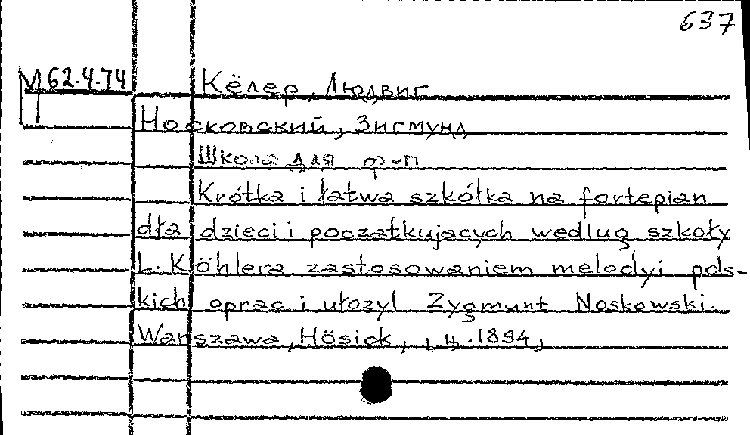 637
М 62.4.74 Кёлер, Людвиг
Носковский, Зигмунд
Школа для ф-п
Krótka i łatwa szkółka na fortepian
dła dzieci i początkujacych według szkoły
L. Köhlera zastosowaniem melodyi pols-
kich oprac i ułozyl Zygmunt Noskowski.
Warszawa, Hösick, 1894,